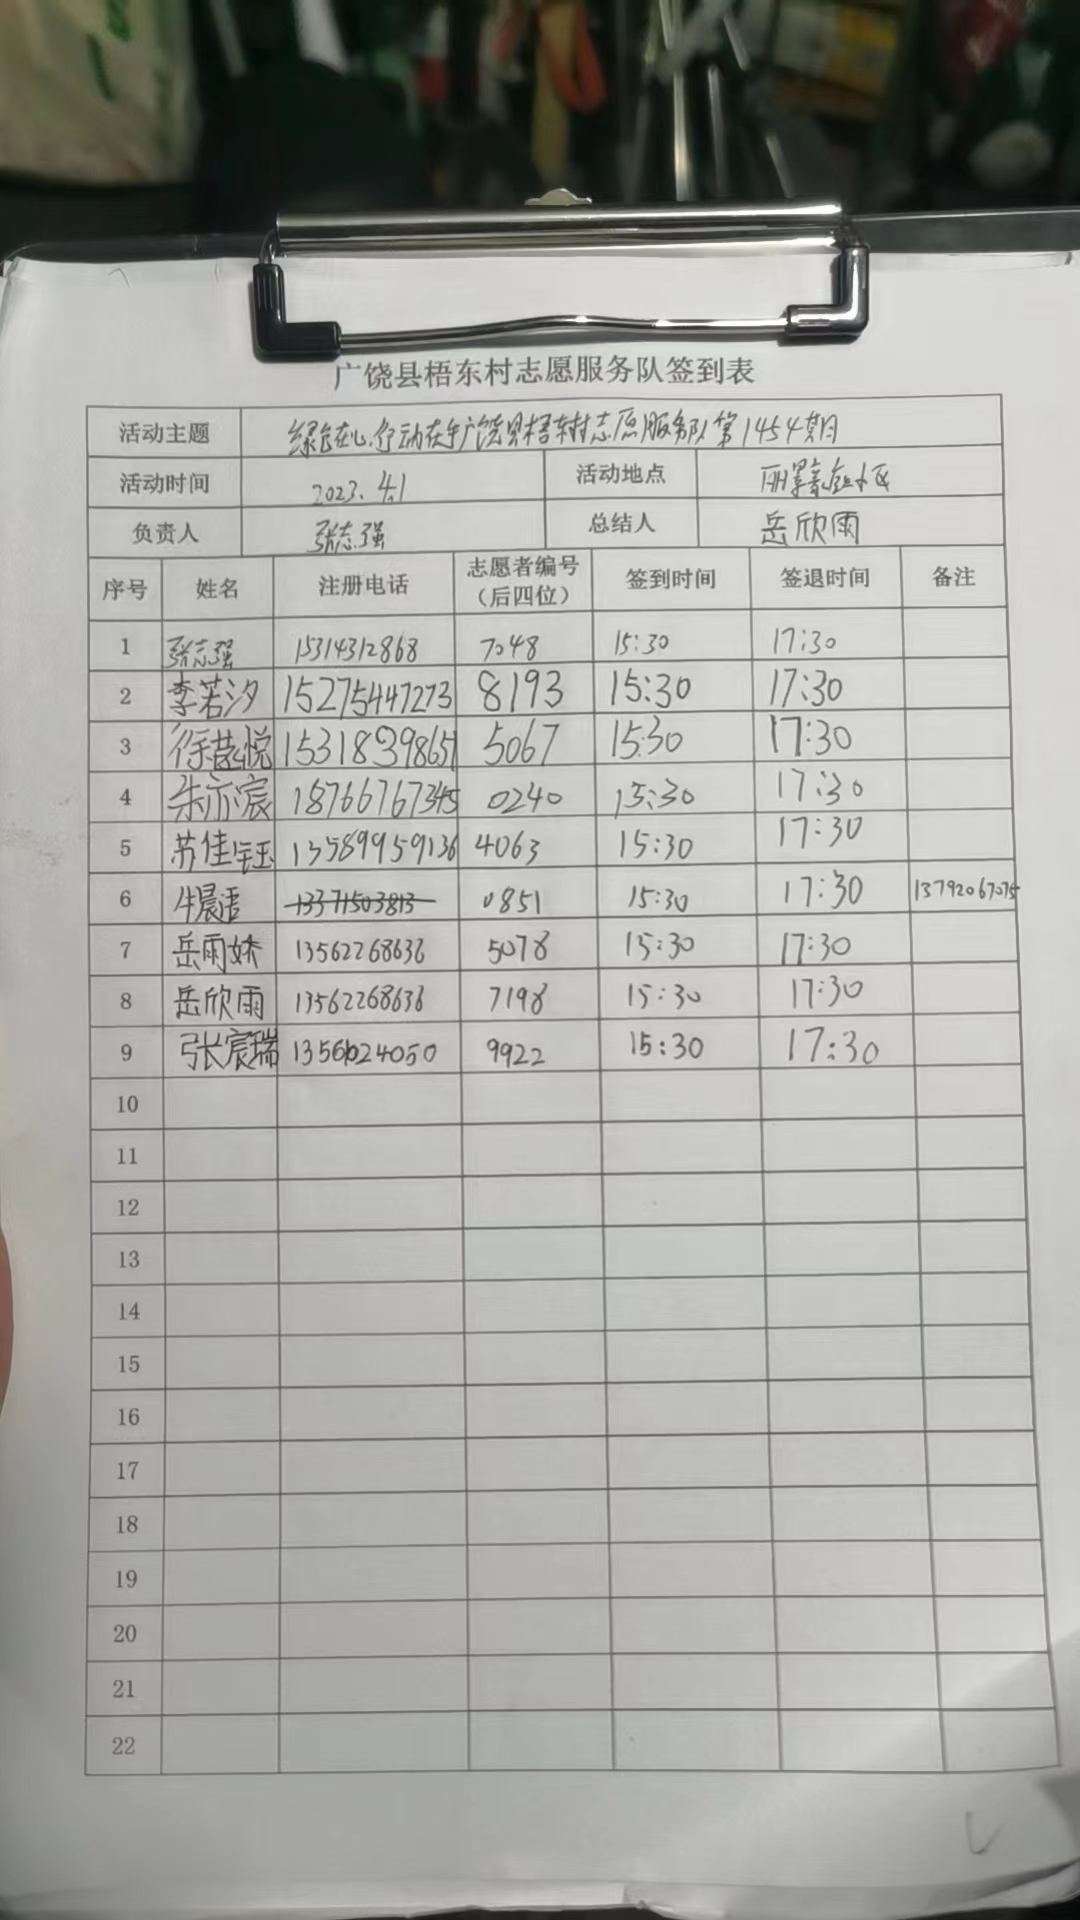 广饶县梧东村志愿服务队签到表
活动主题 绿色在心行动在手广饶县梧东村志愿服务队第1454期
活动时间 2023.4.1 活动地点 小区
负责人 张志强 总结人 岳欣雨
序号 姓名 注册电话 志愿者编号（后四位） 签到时间 签退时间 备注
1 张志强 15314312868 7048 15:30 17:30
2 李若汐 15275447273 8193 15:30 17:30
3 徐 悦 15318398651 5067 15:30 17:30
4 朱亦宸 18766767345 0240 15:30 17:30
5 苏佳钰 4063 15:30 17:30
6 牛晨语 13371503813 0851 15:30 17:30 13792067075
7 岳雨娇 13562268636 5078 15:30 17:30
8 岳欣雨 13562268636 7198 15:30 17:30
9 张宸瑞 9922 15:30 17:30
10
11
12
13
14
15
16
17
18
19
20
21
22